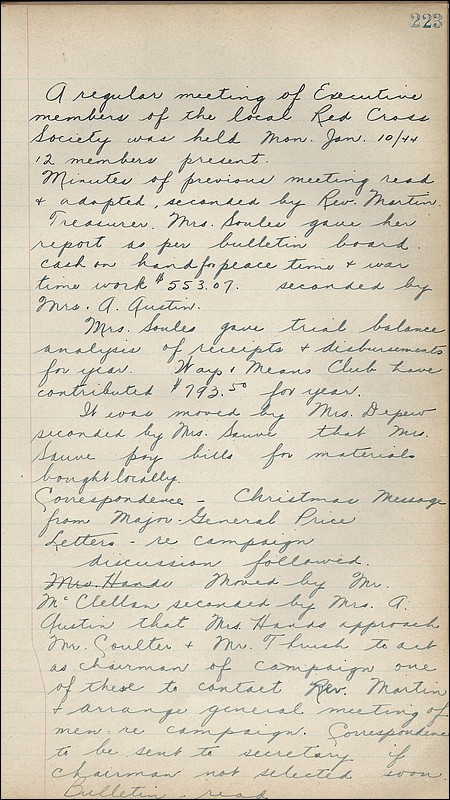 223
A regular meeting of Executive
members of the local Red Cross
Society was held Mon. Jan. 10/44
12 members present.
Minutes of previous meeting read
& adopted, seconded by Rev. Martin.
Treasurer, Mrs. Soules gave her
report as per bulletin board.
Cash on hand for peace time & war
time work $553.07. seconded by
Mrs. A. Austin.
Mrs. Soules gave trial balance
analysis of receipts & disbursements
for year. Ways & Means Club have
contributed $793.50 for year.
It was moved by Mrs. Depew
seconded by Mrs. Sauve that Mrs.
Sauve pay bills for materials
bought locally.
Correspondence - Christmas Message
from Major-General Price
Letters - re campaign
discussion followed.
Mrs. Hands Moved by Mr.
McClellan seconded by Mrs. A.
Austin that Mrs. Hands approach
Mr. Coulter & Mr. Thrush to act
as chairman of campaign one
of these to contact Rev. Martin
& arrange general meeting of
men re campaign. Correspondence
to be sent to secretary if
chairman not selected soon.
Bulletin - read